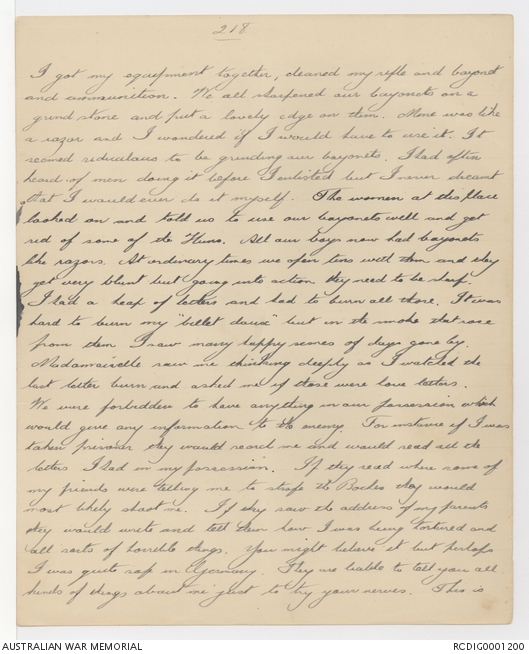 218
I got my equipment together, cleaned my rifle and bayonet
and ammunition. We all sharpened our bayonets on a
grind stone and put a lovely edge on them. Mine was like
a razor and I wondered if I would have to use it. It
seemed rediculous to be grinding our bayonets. I had often
heard of men doing it before I enlisted but I never dreamt
that I would ever do it myself. The women at this place
looked on and told us to use our bayonets well and get
rid of some of the Huns. All our boys now had bayonets
like razors. At ordinary times we open tins with them and they
get very blunt but going into action they need to be sharp.
I had a heap of letters and had to burn all those. It was
hard to burn my "billet daux" but in the smoke that rose
from them I saw many happy scenes of days gone by.
Madamaiselle saw me thinking deeply as I watched the
last letter burn and asked me if those were love letters.
We were forbidden to have anything in our possession which
would give any information to the enemy. For instance if I was
taken prisoner they would search me and would read all the
letters I had in my possession. If they read where some of
my friends were telling me to strafe the Boches they would
most likely shoot me. If they saw the address of my parents
they would write and tell them how I was being tortured and
all sorts of horrible things. You might believe it but perhaps
I was quite safe in Germany. They are liable to tell you all
kinds of things about me just to try your nerves. This is
AUSTRALIAN WAR MEMORIAL
RCDIG0001200